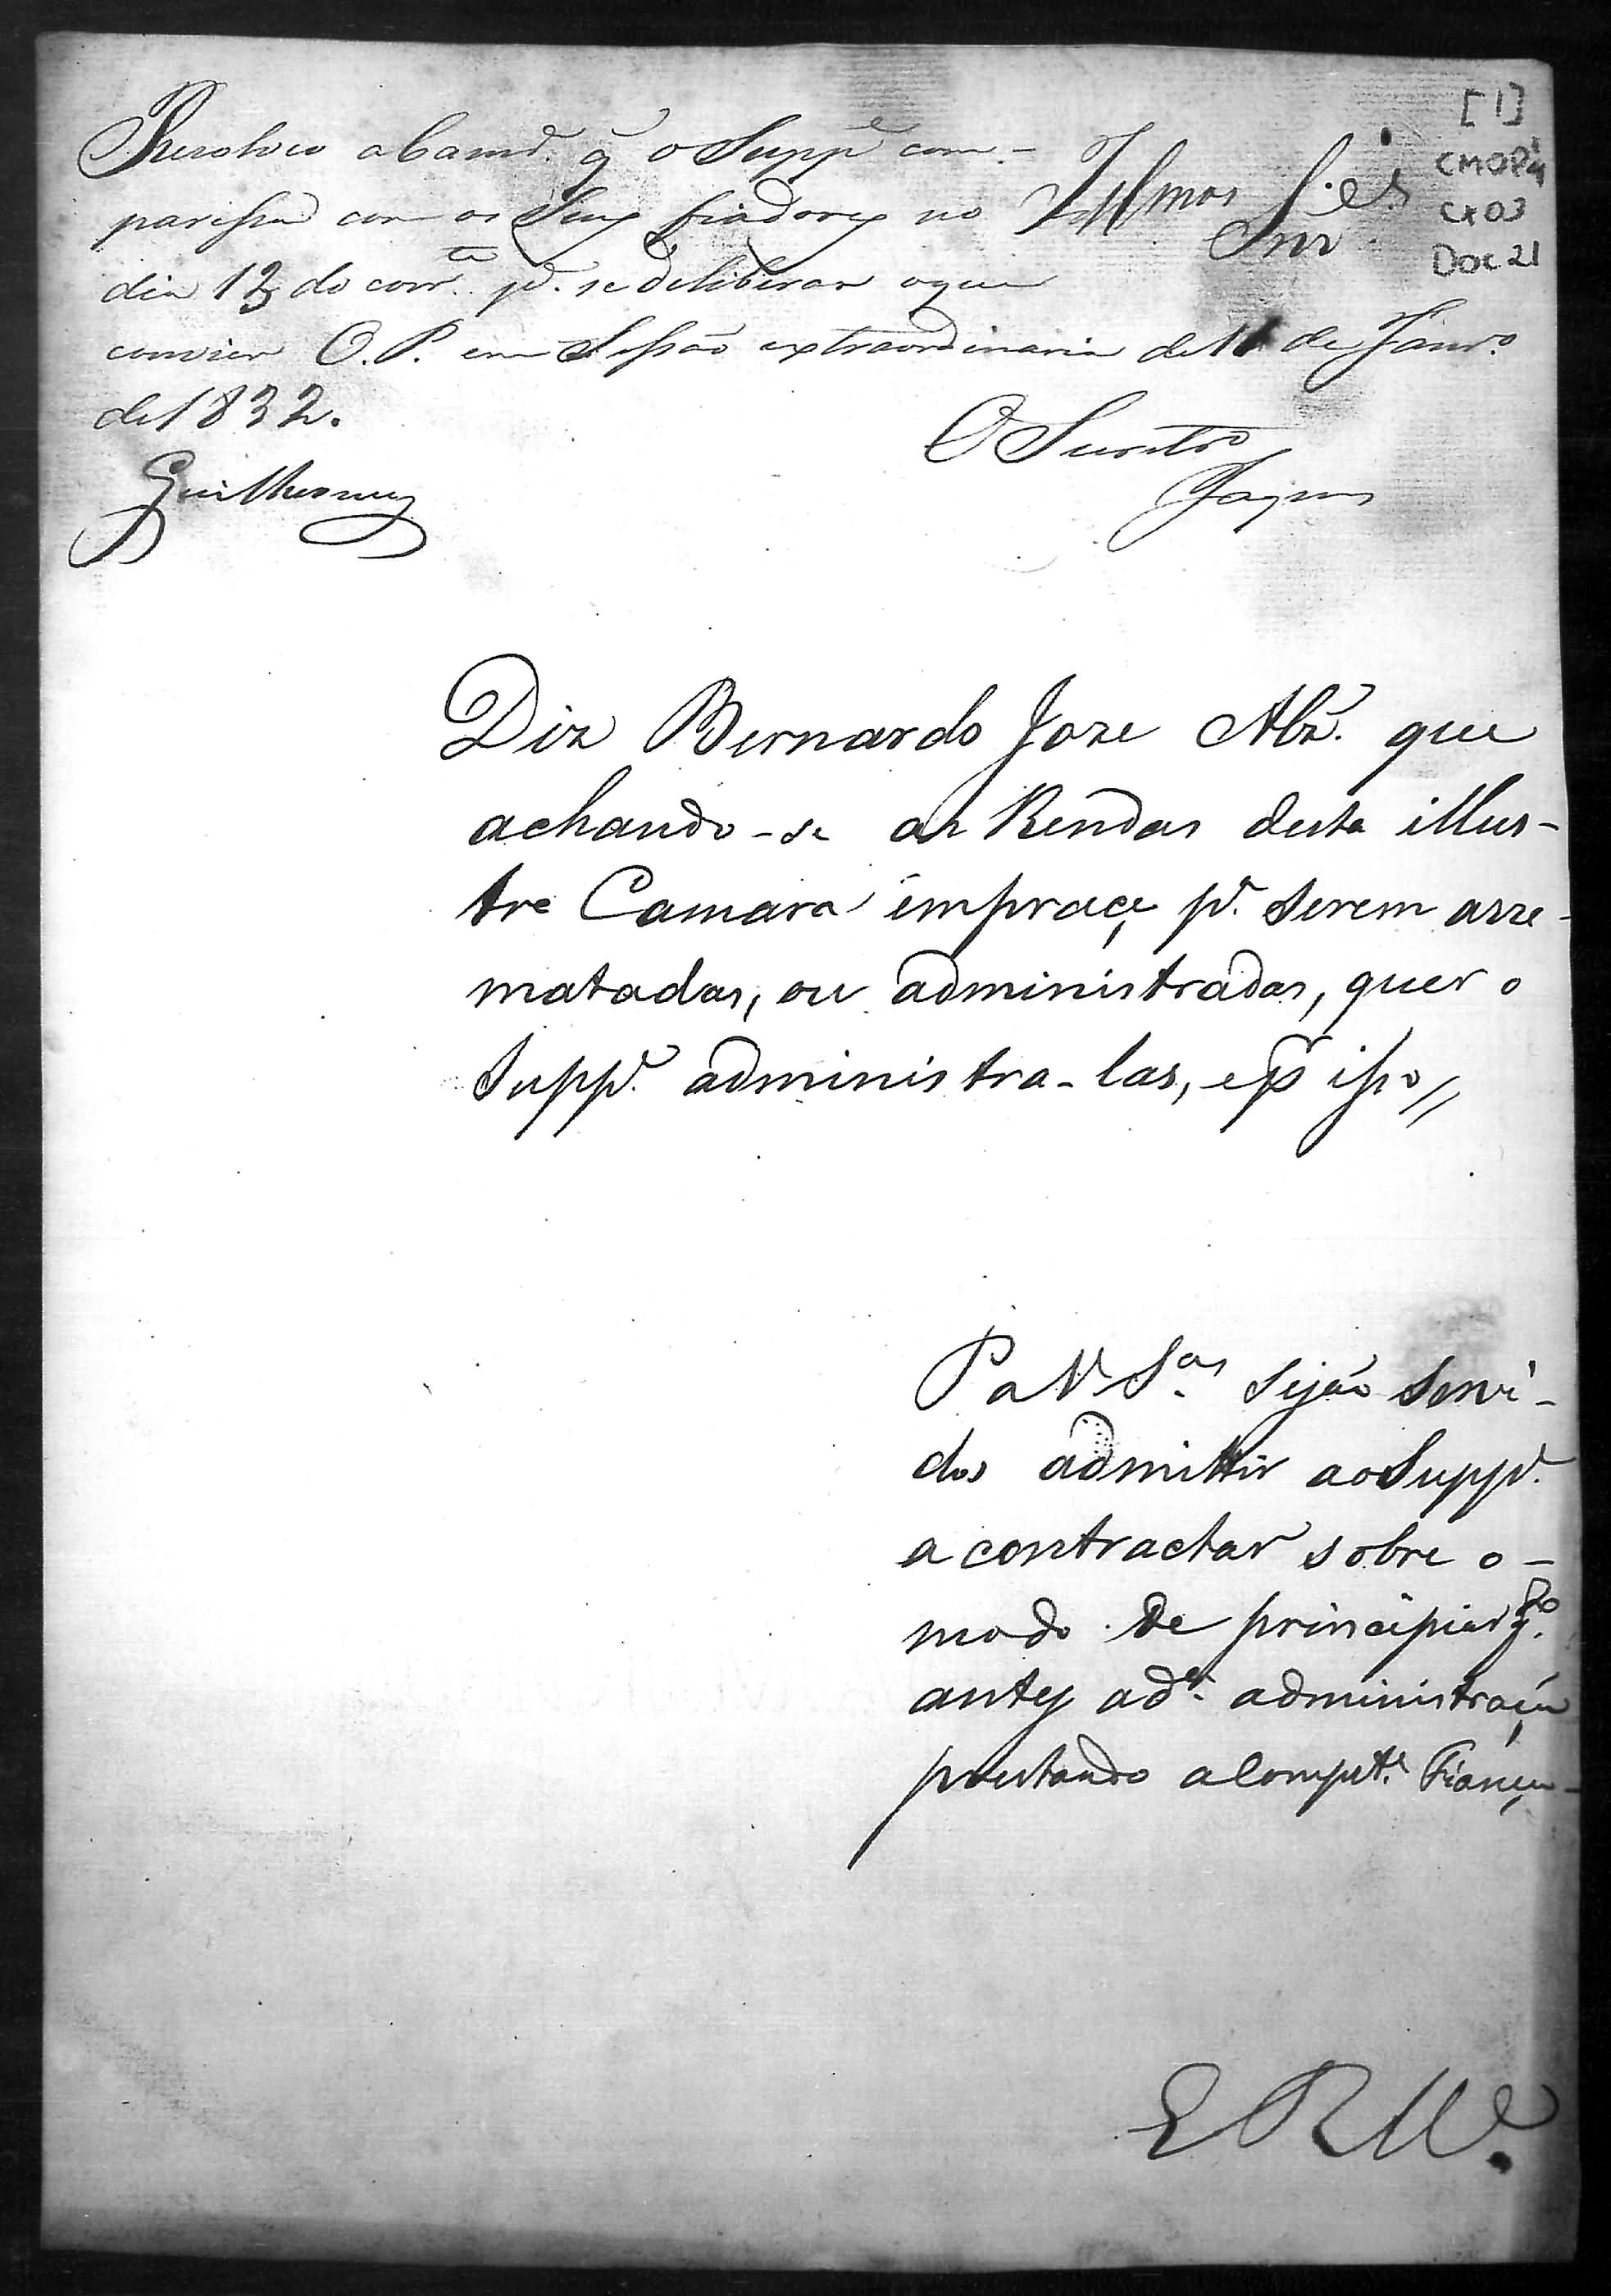 [1]
CMOP
Cx 03
Doc 21
Resolveo a Camr.ª q̃ o Supp.e com-
pareſsa com os Seus fiadores no
dia 13 do corr.te p.ª se deliberar oque
convier O. P. em Seſsão extraordinaria de 11 de Janr.º
de 1832.
O Secretr.º
Guilhermes
Illmos Snr.es
Diz Bernardo Joze Alz. que
achando-se as Rendas desta illus-
tre Camara empraça p.ª serem arre-
matadas, ou administradas, quer o
Supp.e administra-las, e p.r iſso //
P a V S.as Sejão servi-
dos admittir ao Supp.e
a contractar sobre o-
modo de principiar q.to
antes a d.ª administração
prestando a Compet.e Fiança-
E R M.ce